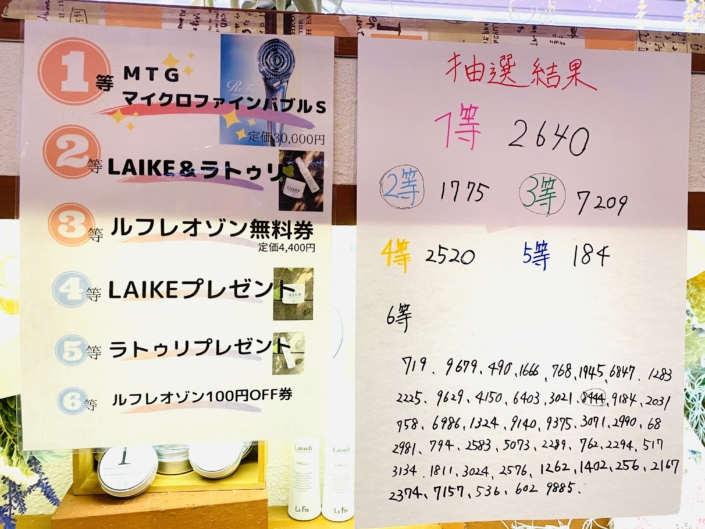 1等 MTG
マイクロファインバブルS
定価30,000円
2等 LAIKE&ラトゥリ
3等 ルフレオゾン無料券
定価4,400円
4等 LAIKEプレゼント
5等 ラトゥリプレゼント
6等 ルフレオゾン100円OFF券
抽選結果
1等 2640
2等 1775 3等 7209
4等 2520 5等 184
6等
719、9679、490、1666、768、1945、6847、1283
2225、9629、4150、6403、3021、8444、9184、2031
958、6986、1324、9140、9375、3071、2990、68
2981、794、2583、5073、2289、762、2294、517
3134、1811、3024、2576、1262、1402、256、2167
2374、7157、536、602、9885、
La Fie